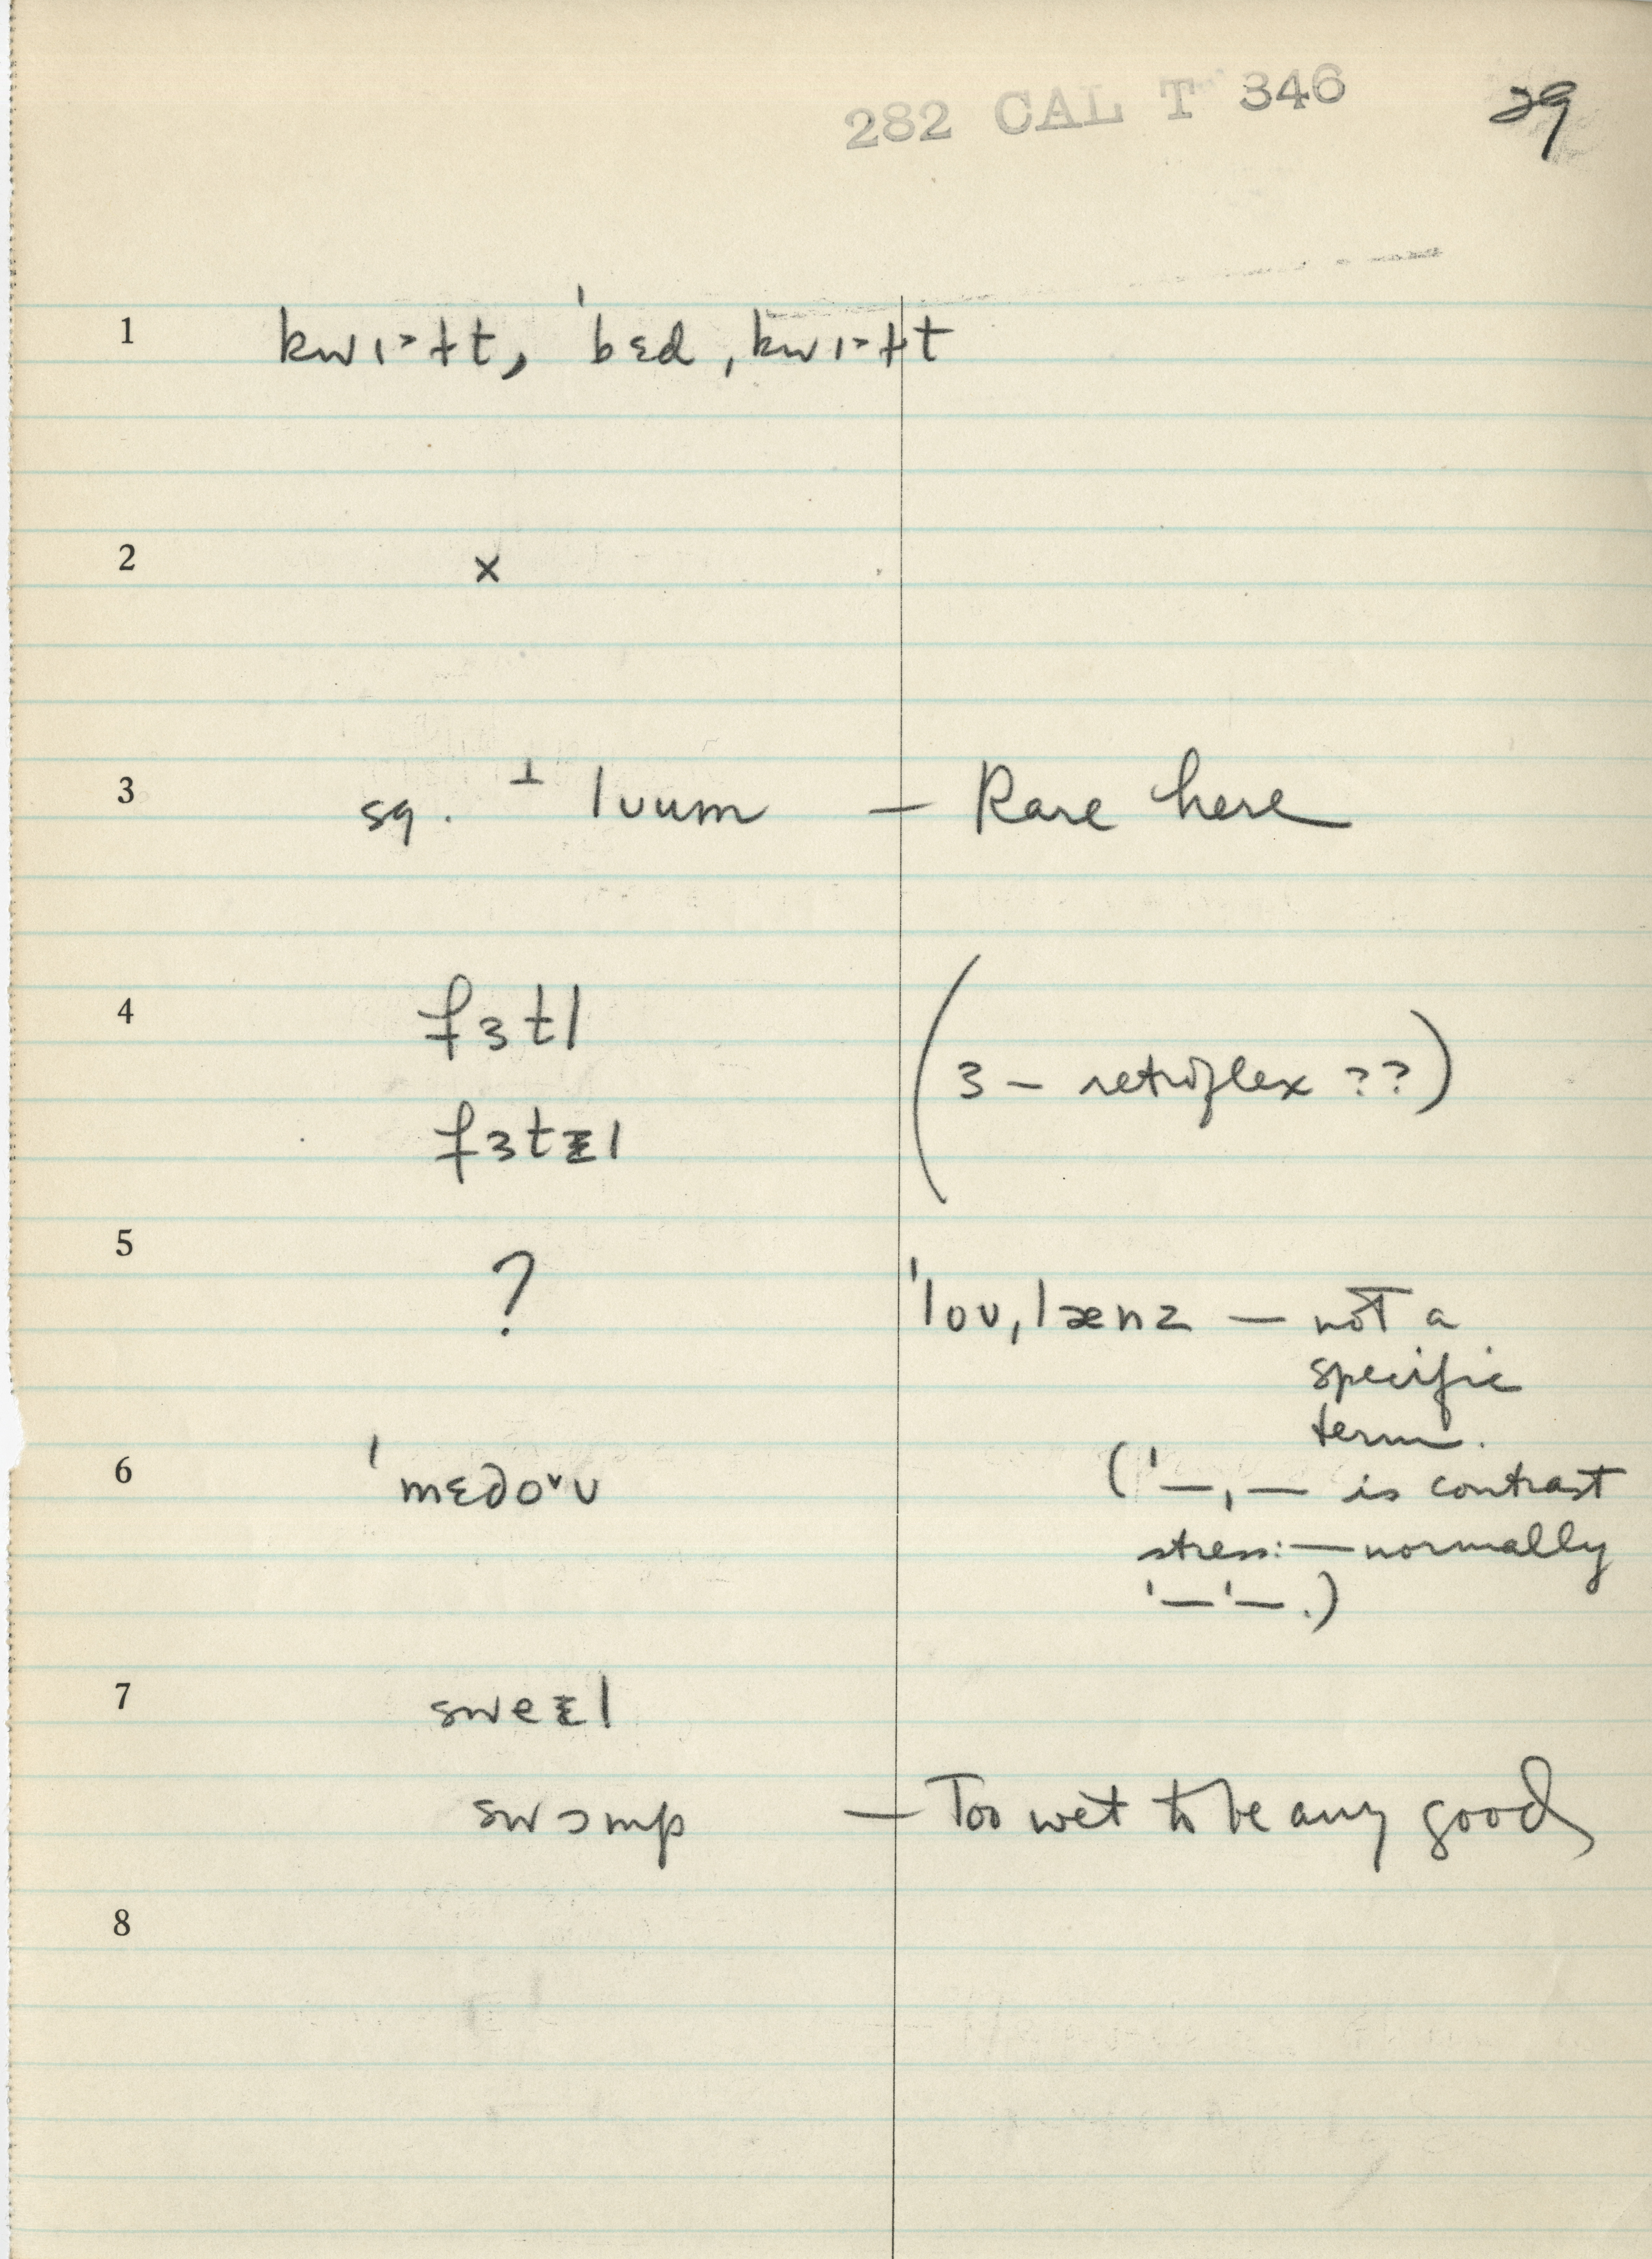 282 CAL T 346 29
1 kwɪ˃ɫt, ˈbɛd ˌkwɪ˃ɫt
2 x
3 sq. ⊥ lʊum — Rare here
4 fɜtl
(ɜ — retroflex ??)
fɜtɪl
5 ? ˈloʊˌlænz — not a
specific
term.
6 ˈmɛdo˅ʊ (ˈ—ˌ— is contrast
stress: — normally
ˈ—ˈ—.)
7 sweɪl
swɔmp — Too wet to be any good
8